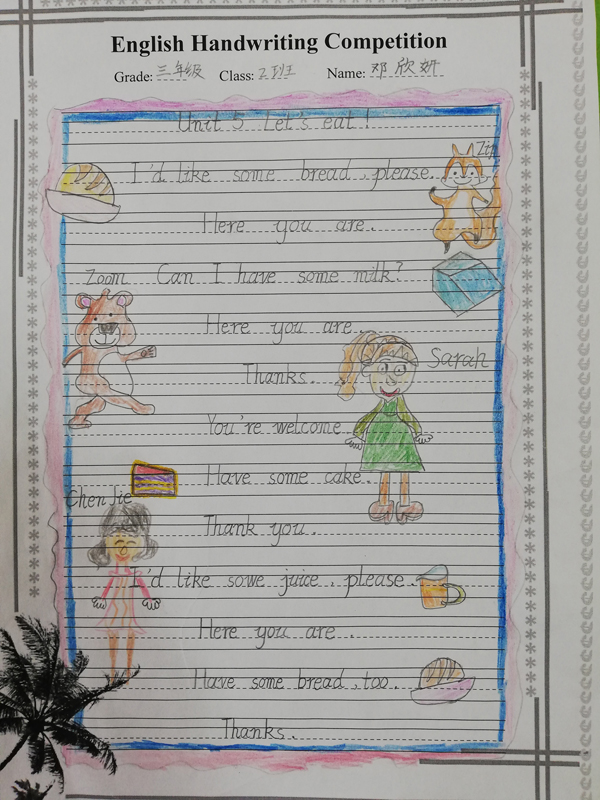 English Handwriting Competition
Grade: 三年级 Class: 2班 Name: 邓欣妍
Unit 5 Let's eat!
Zip
I'd like some bread, please.
Here you are.
Zoom Can I have some milk?
Here you are.
Sarah
Thanks.
You're welcome.
Have some cake.
Chen Jie
Thank you.
I'd like sowe juice, please.
Here you are.
Have some bread, too.
Thanks.